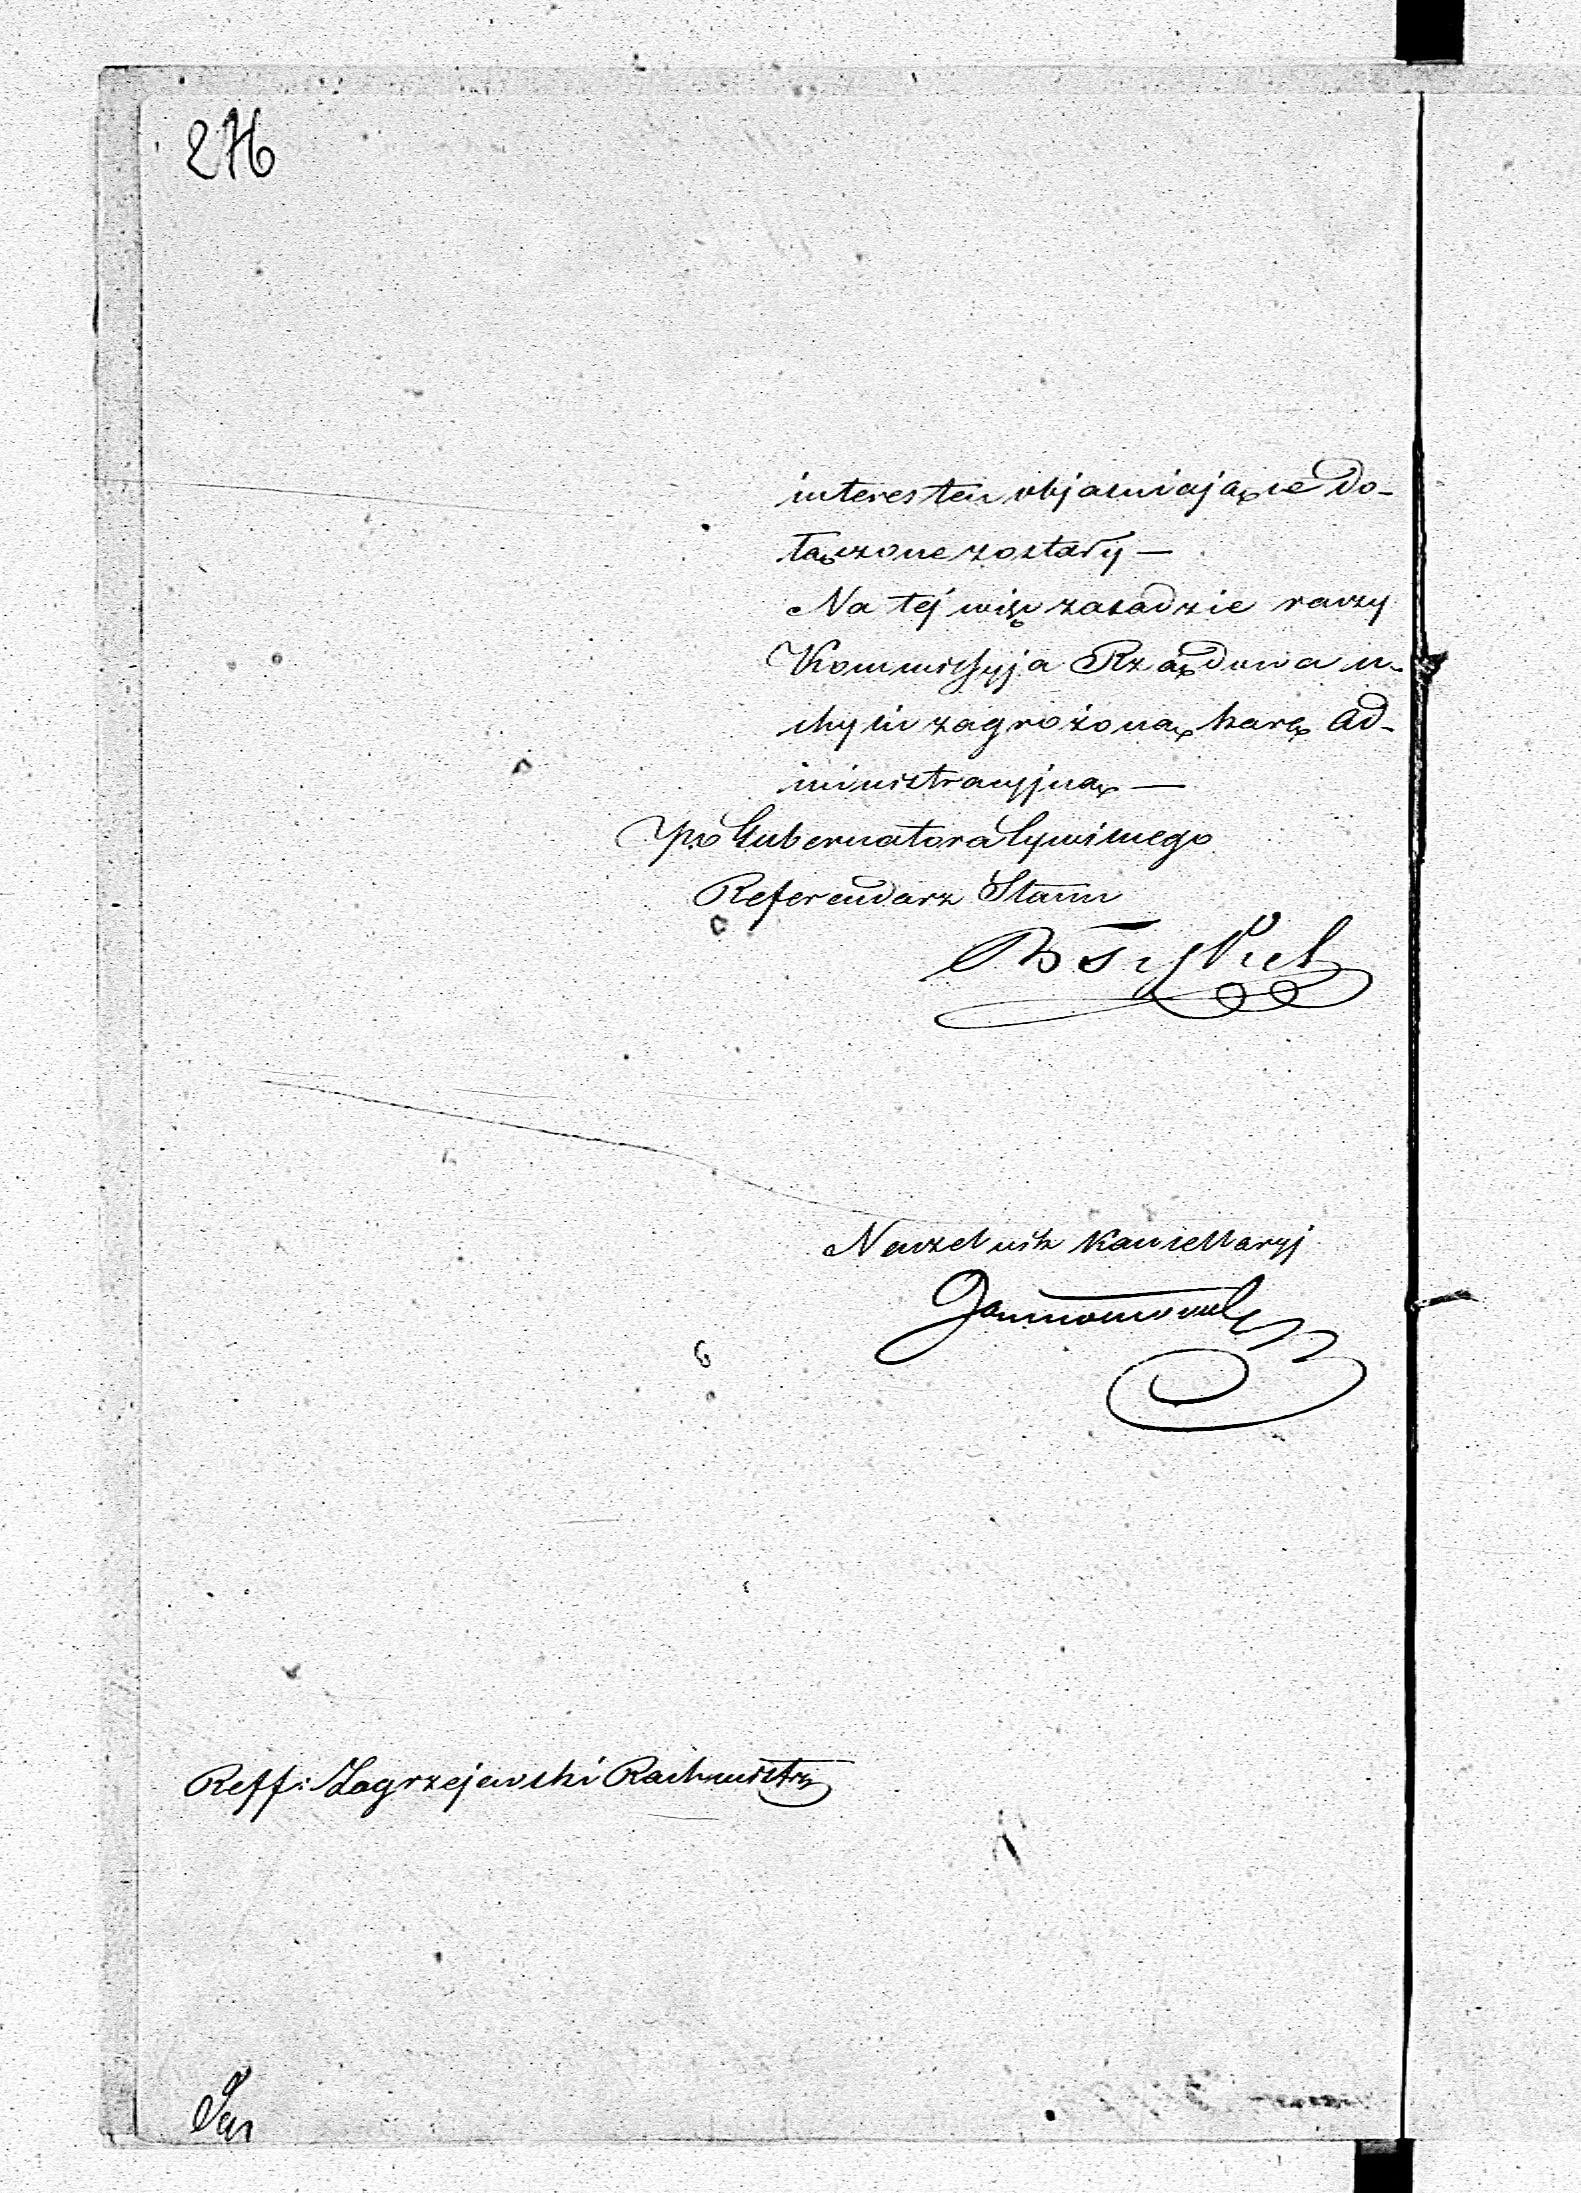 276
interes ten objasniające do-
łączone zostały —
Na tej więc zasadzie raczy
Kommissyja Rządowa u-
chylić zagrożoną karę Ad-
ministracyjną —
po Gubernatora Cywilnego
Referendarz Stanu
Naczelnik Kancellaryj
Reff: Zagrzejewski Rachmistrz